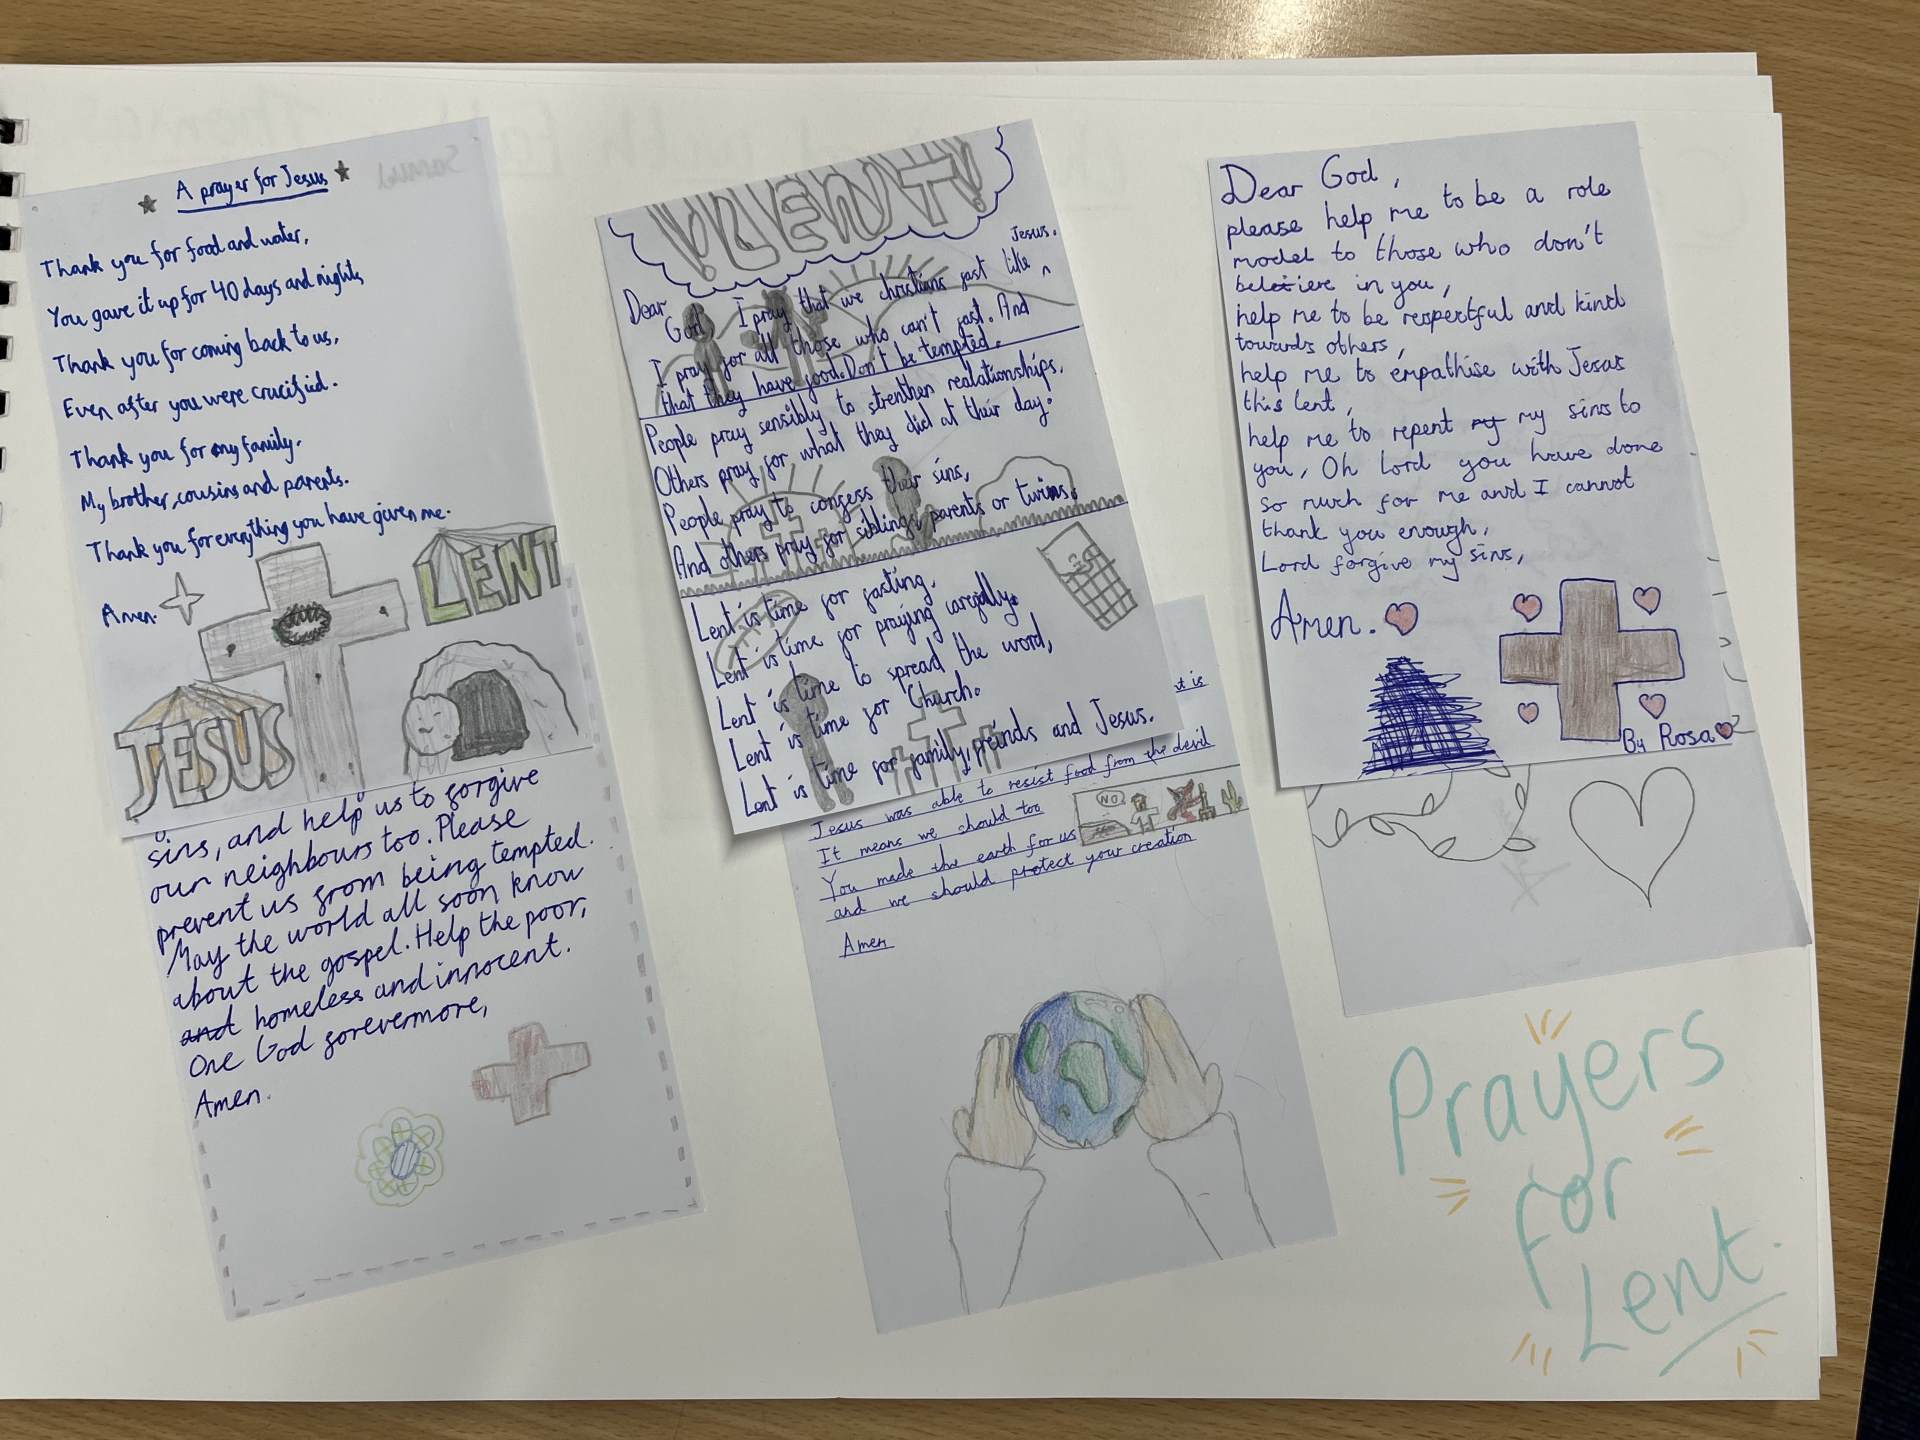 A prayer for Jesus
Thank you for food and water,
You gave it up for 40 days and nights,
Thank you for coming back to us,
Even after you were crucified.
Thank you for my family.
My brother, cousins and parents.
Thank you for everything you have given me.
Amen.
LENT
JESUS
sins, and help us to forgive
our neighbours too. Please
prevent us from being tempted.
May the world all soon know
about the gospel. Help the poor,
and homeless and innocent.
One God forevermore,
Amen.
!LENT!
Jesus.
Dear God I pray that we christians fast like ^
I pray for all those who can't fast. And
that they have food. Don't be tempted.
People pray sensibly to strenthen realationships,
Others pray for what they did at their day.
People pray to confess their sins,
And others pray for siblings, parents or twins.
Lent is time for fasting,
Lent is time for praying carefully.
Lent is time to spread the word,
Lent is time for Church.
Lent is time for family, freinds and Jesus.
t is
Jesus was able to resist food from the devil
It means we should too
NO
You made the earth for us
and we should protect your creation
Amen
Dear God,
please help me to be a role
model to those who don't
beleiieve in you,
help me to be respectful and kind
towards others,
help me to empathise with Jesus
this lent,
help me to repent my my sins to
you, Oh Lord you have done
so much for me and I cannot
thank you enough,
Lord forgive my sins,
Amen.
By Rosa
Prayers
for
Lent.